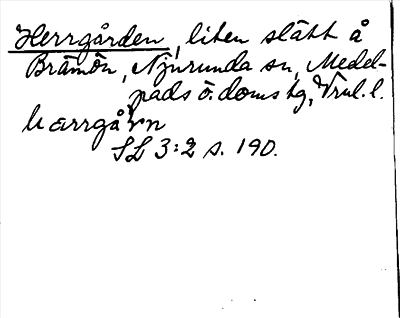 Herrgården, liten slätt å
Brämön, Njurunda sn, Medel-
pads ö. doms tg, Vnl. l.
harrgårn
SL 3:2 s. 190.